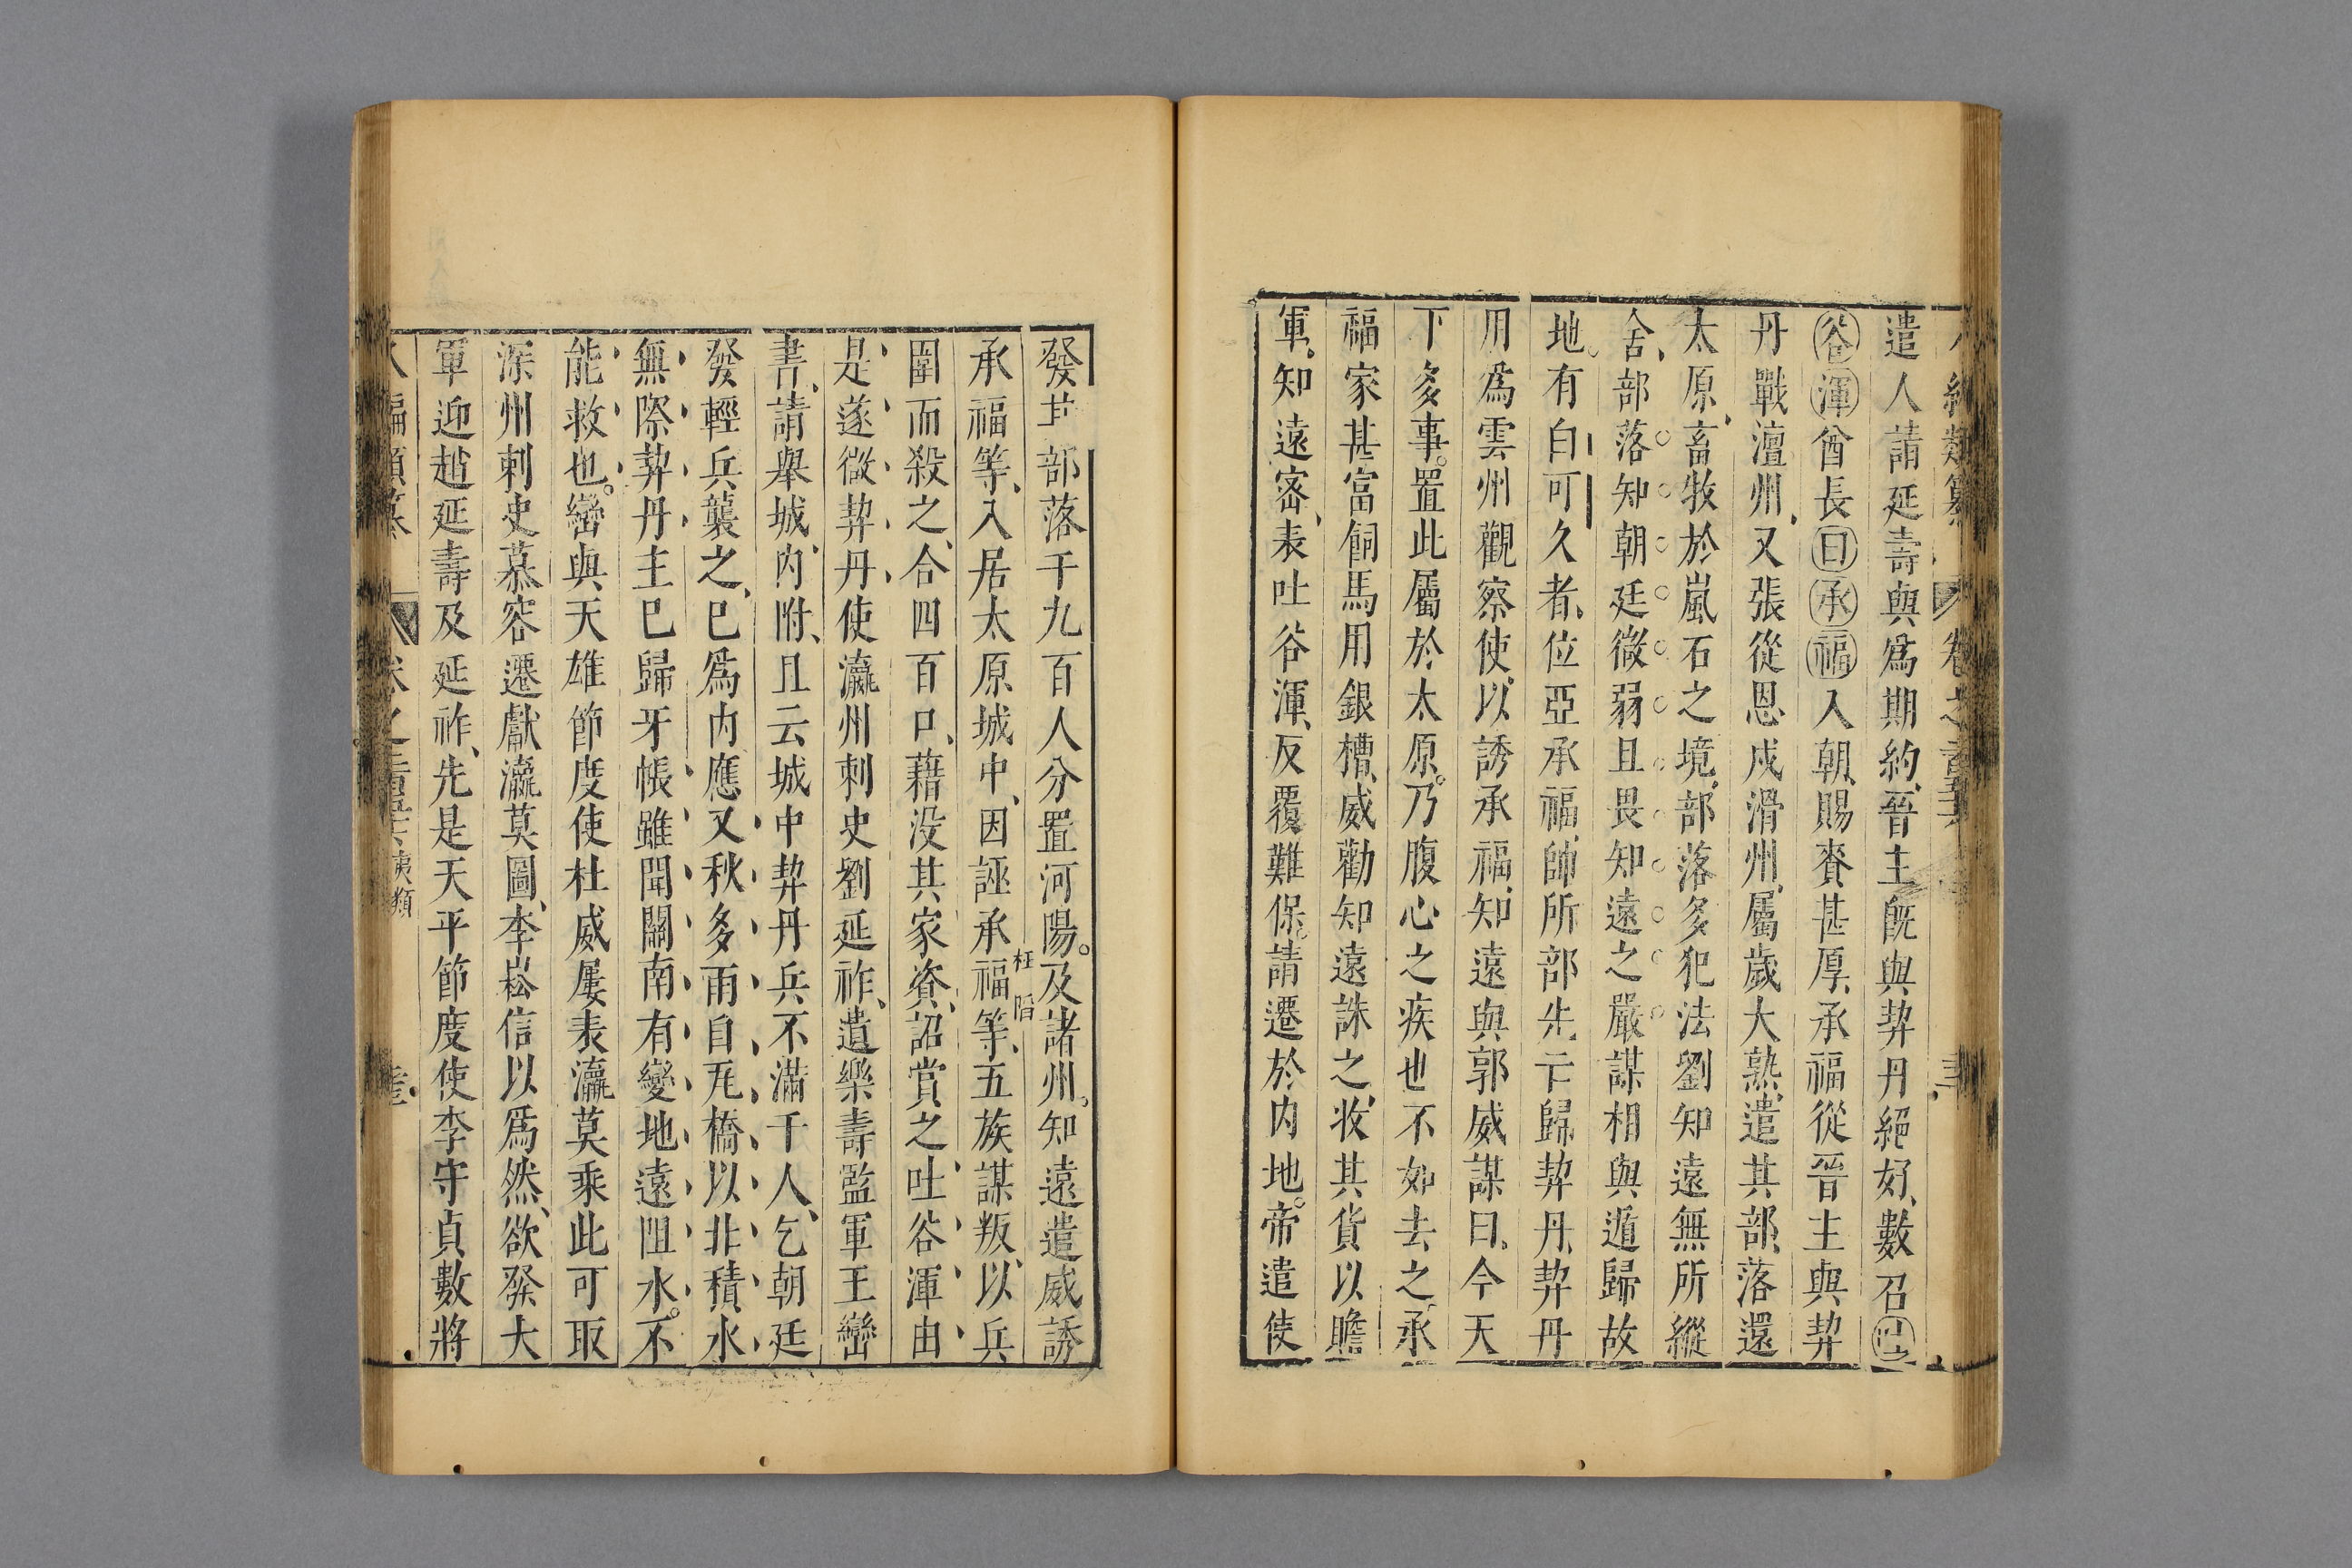 遣人請延壽與爲期約晉主既與契丹絕好數召吐
谷渾酋長白承福入朝賜賚甚厚承福從晉主與契
丹戰澶州又張從恩戍滑州屬歲大熟遣其部落還
太原畜牧於嵐石之境部落多犯法劉知遠無所縱
舍部落知朝廷微弱且畏知遠之嚴謀相與遁歸故
地有白可久者位亞承福帥所部先亡歸契丹契丹
用爲雲州觀察使以誘承福知遠與郭威謀曰今天
下多事置此屬於太原乃腹心之疾也不如去之承
福家甚富飼馬用銀槽威勸知遠誅之收其貨以贍
軍知遠密表吐谷渾反覆難保請遷於内地帝遣使
發其部落千九百人分置河陽及諸州知遠遣威誘
承福等入居太原城中因誣承福等五族謀叛以兵
枉 陷
圍而殺之合四百口藉没其家資詔賞之吐谷渾由
是遂微契丹使瀛州刺史劉延祚遺樂壽監軍王巒
書請舉城内附且云城中契丹兵不滿千人乞朝廷
發輕兵襲之已爲内應又秋多雨自瓦橋以北積水
無際契丹主已歸牙帳雖聞關南有變地遠阻水不
能救也巒與天雄節度使杜威屢表瀛莫乘此可取
深州刺史慕容遷獻瀛莫圖李崧信以爲然欲發大
軍迎趙延壽及延祚先是天平節度使李守貞數將